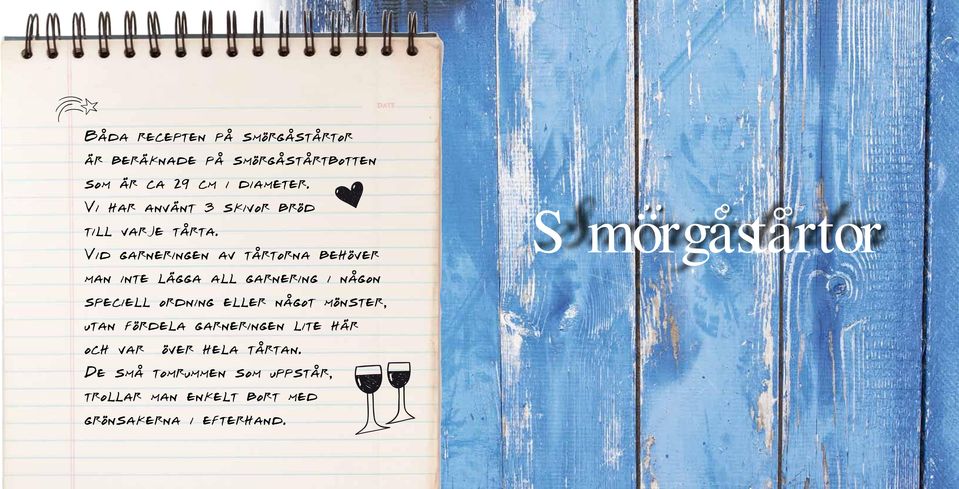 DATE
BÅDA RECEPTEN PÅ SMÖRGÅSTÅRTOR
ÄR BERÄKNADE PÅ SMÖRGÅSTÅRTBOTTEN
SOM ÄR CA 29 CM I DIAMETER.
VI HAR ANVÄNT 3 SKIVOR BRÖD
TILL VARJE TÅRTA.
VID GARNERINGEN AV TÅRTORNA BEHÖVER
MAN INTE LÄGGA ALL GARNERING I NÅGON
SPECIELL ORDNING ELLER NÅGOT MÖNSTER,
UTAN FÖRDELA GARNERINGEN LITE HÄR
OCH VAR ÖVER HELA TÅRTAN.
DE SMÅ TOMRUMMEN SOM UPPSTÅR,
TROLLAR MAN ENKELT BORT MED
GRÖNSAKERNA I EFTERHAND.
Smörgåstårtor